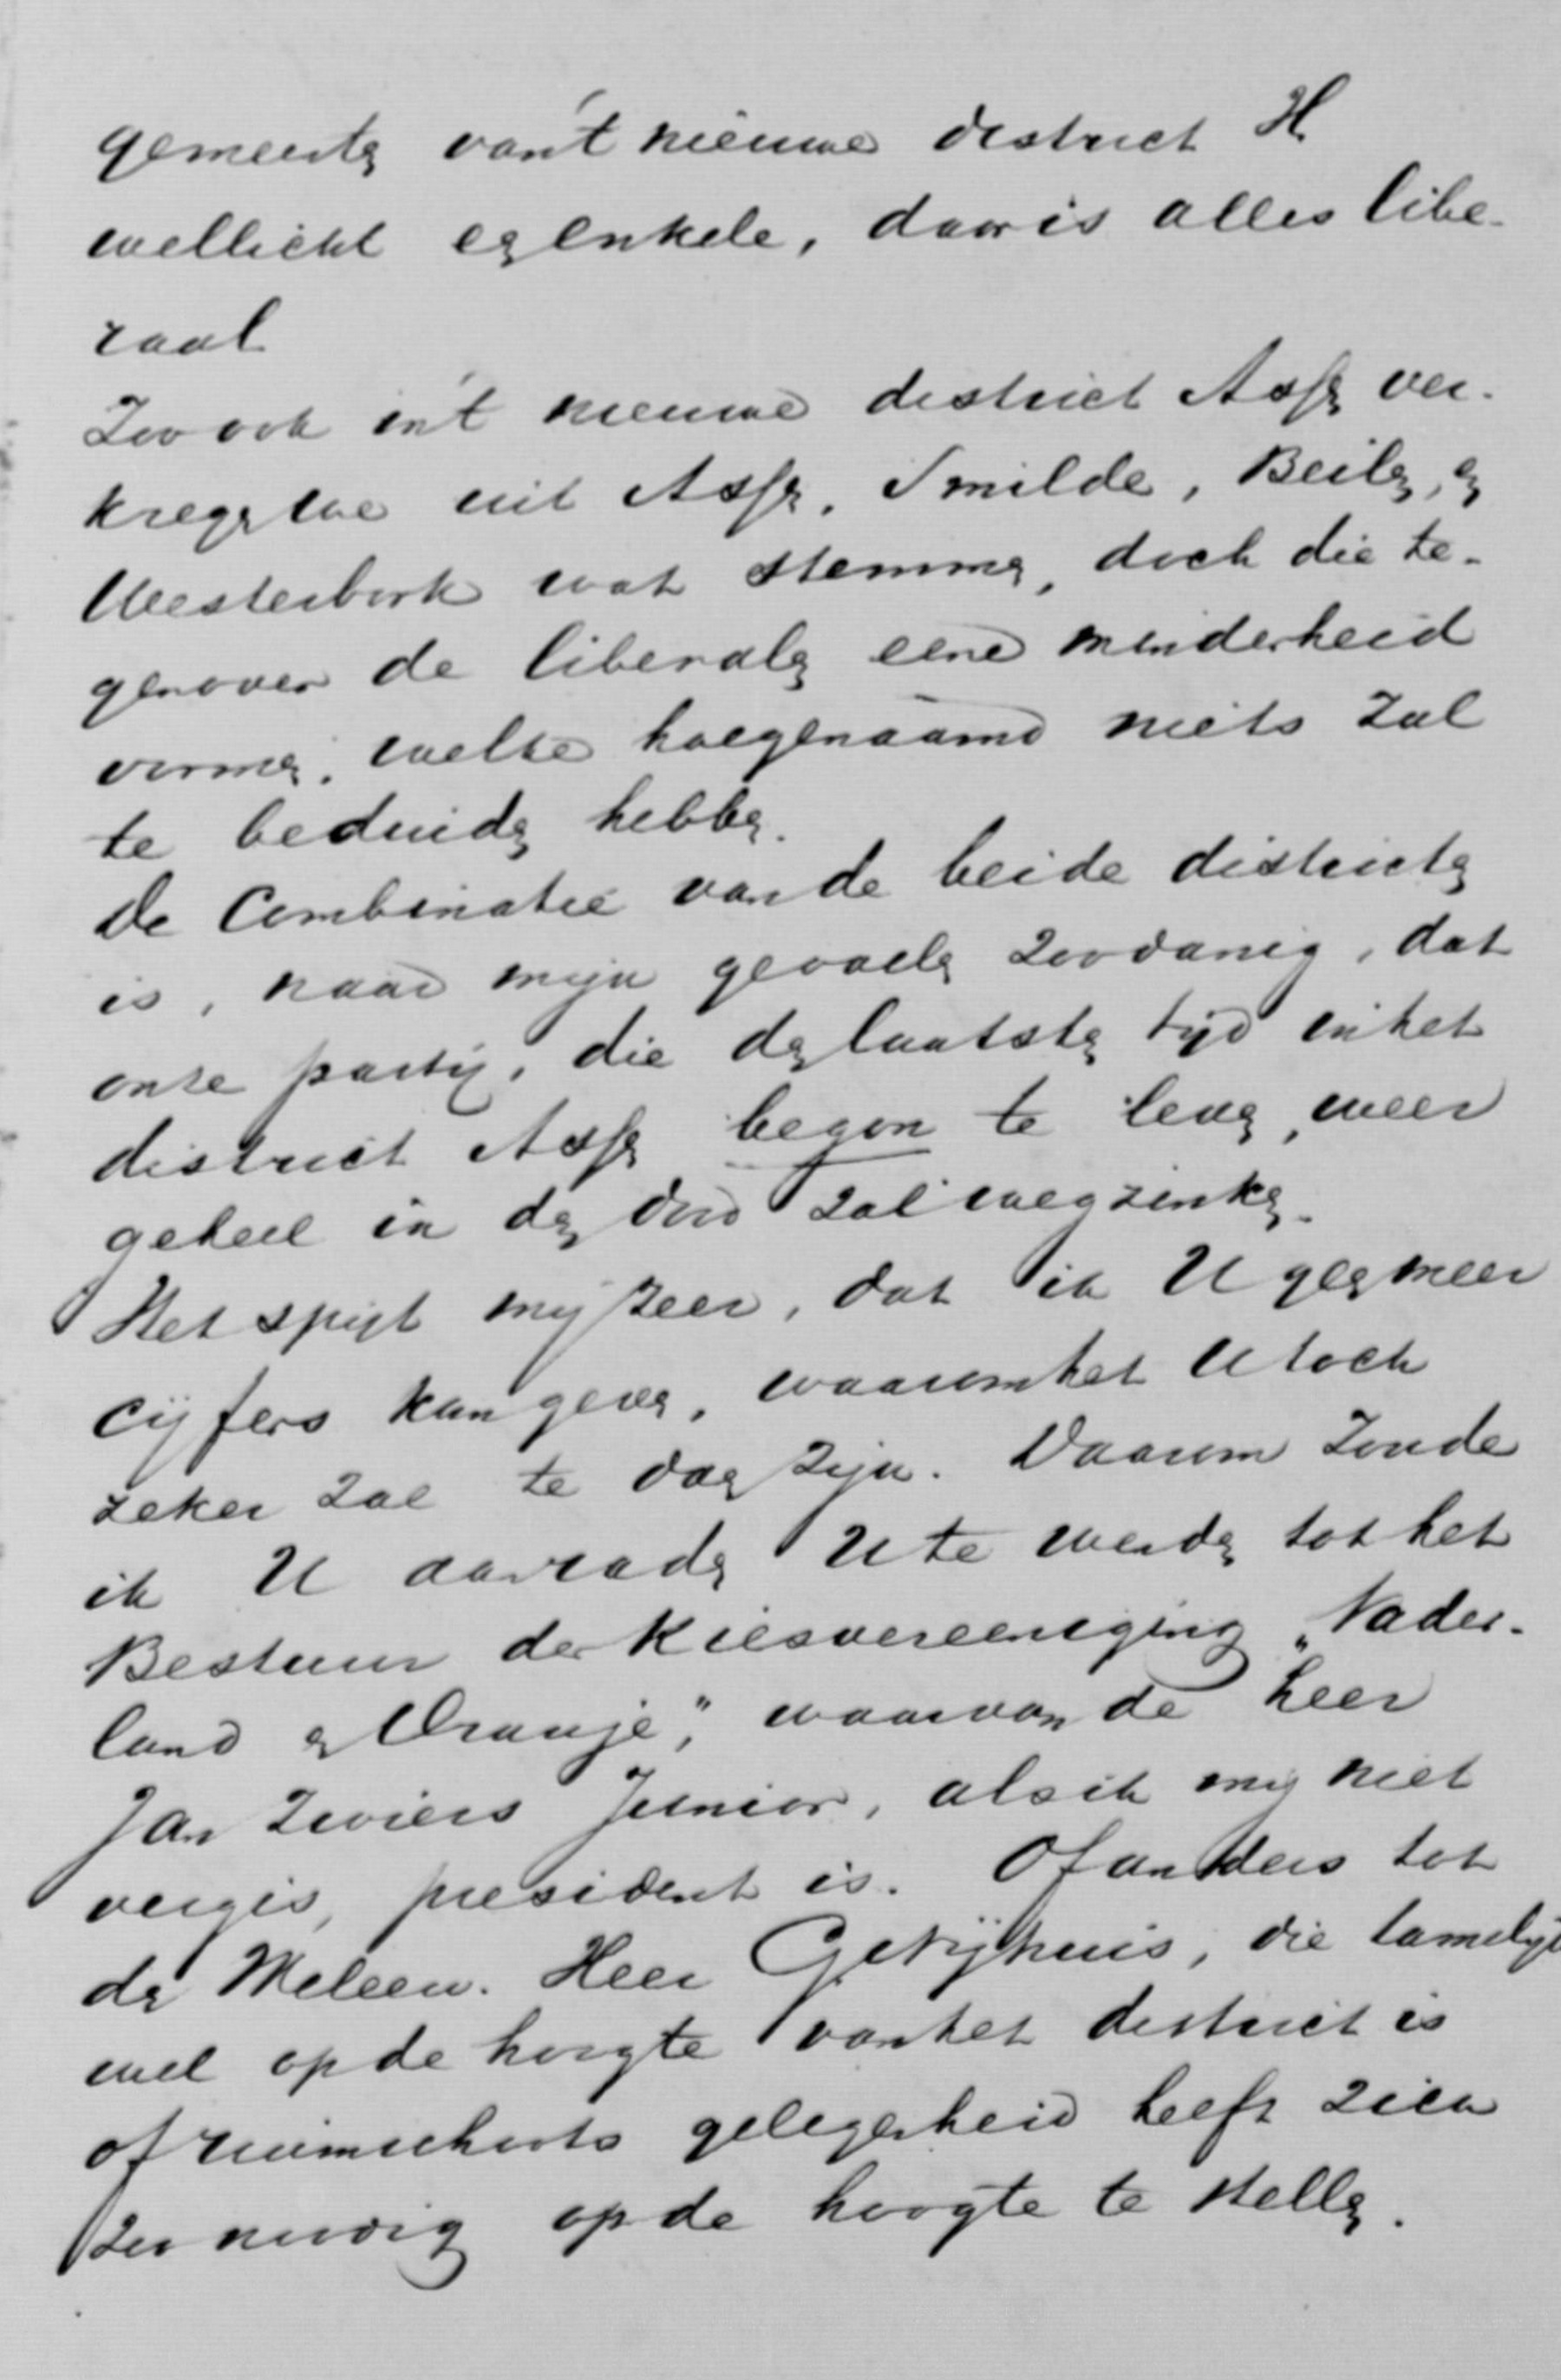 gemeenten van 't nieuwe district H
wellicht een enkele, daar is alles libe-
raal
Zoo ook in 't nieuwe district Assen ver-
kregen we uit Assen, Smilde, Beilen, en
Westerbork wat stemmen, doch die te-
genover de liberalen eene minderheid
vormen, welke hoegenaamd niets zal
te beduiden hebben.
De Combinatie van de beide districten
is, naar mijn gevoelen zoodanig, dat
onze partij, die den laatsten tijd in het
district Assen begon te leven, weer
geheel in den dood zal wegzinken.
Het spijt mij zeer, dat ik U geen meer
cijfers kan geven, waarom het U toch
zeker zal te doen zijn. Daarom zoude
ik U aanraden U te wenden tot het
Bestuur der Kiesvereeniging "Neder-
land en Oranje", waarvan de heer
Jan Zwiers Junior, als ik mij niet
vergis, president is. Of anders tot
den Weleerw. Heer Getijhuis, die tamelijk
wel op de hoogte van het district is
of ruimschoots gelegenheid heeft zich
zoo noodig op de hoogte te stellen.